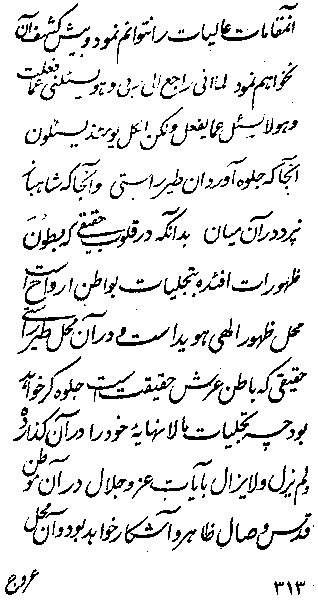 آنمقامات عالیات را نتوانم نمود و بیش کشف آن
نخواهم نمود لمانی راجع الی ربی و هو یسئلنی عما فعلت
و هو لا یسئل عما یفعل ولکن الکل یومئذ یسئلون
آنجا که جلوه آورد آن طیر راستی و آنجا که شاهباز
نپرد در آن میان بدانکه در قلوب حقیقی که بطون
ظهورات افئده و تجلیات بواطن ارواح است
محل ظهور الهی هویدا است و در آن محل طیر
حقیقی که باطن عرش حقیقت است جلوه گر خواهد
بود چه تجلیات بالا نهایهٔ خود را در آن گذارده
و لم یزل و لا یزال بآیات عز و جلال در آن موطن
قدس وصال ظاهر و آشکار خواهد بود و آن محل
۳۱۳ عروج